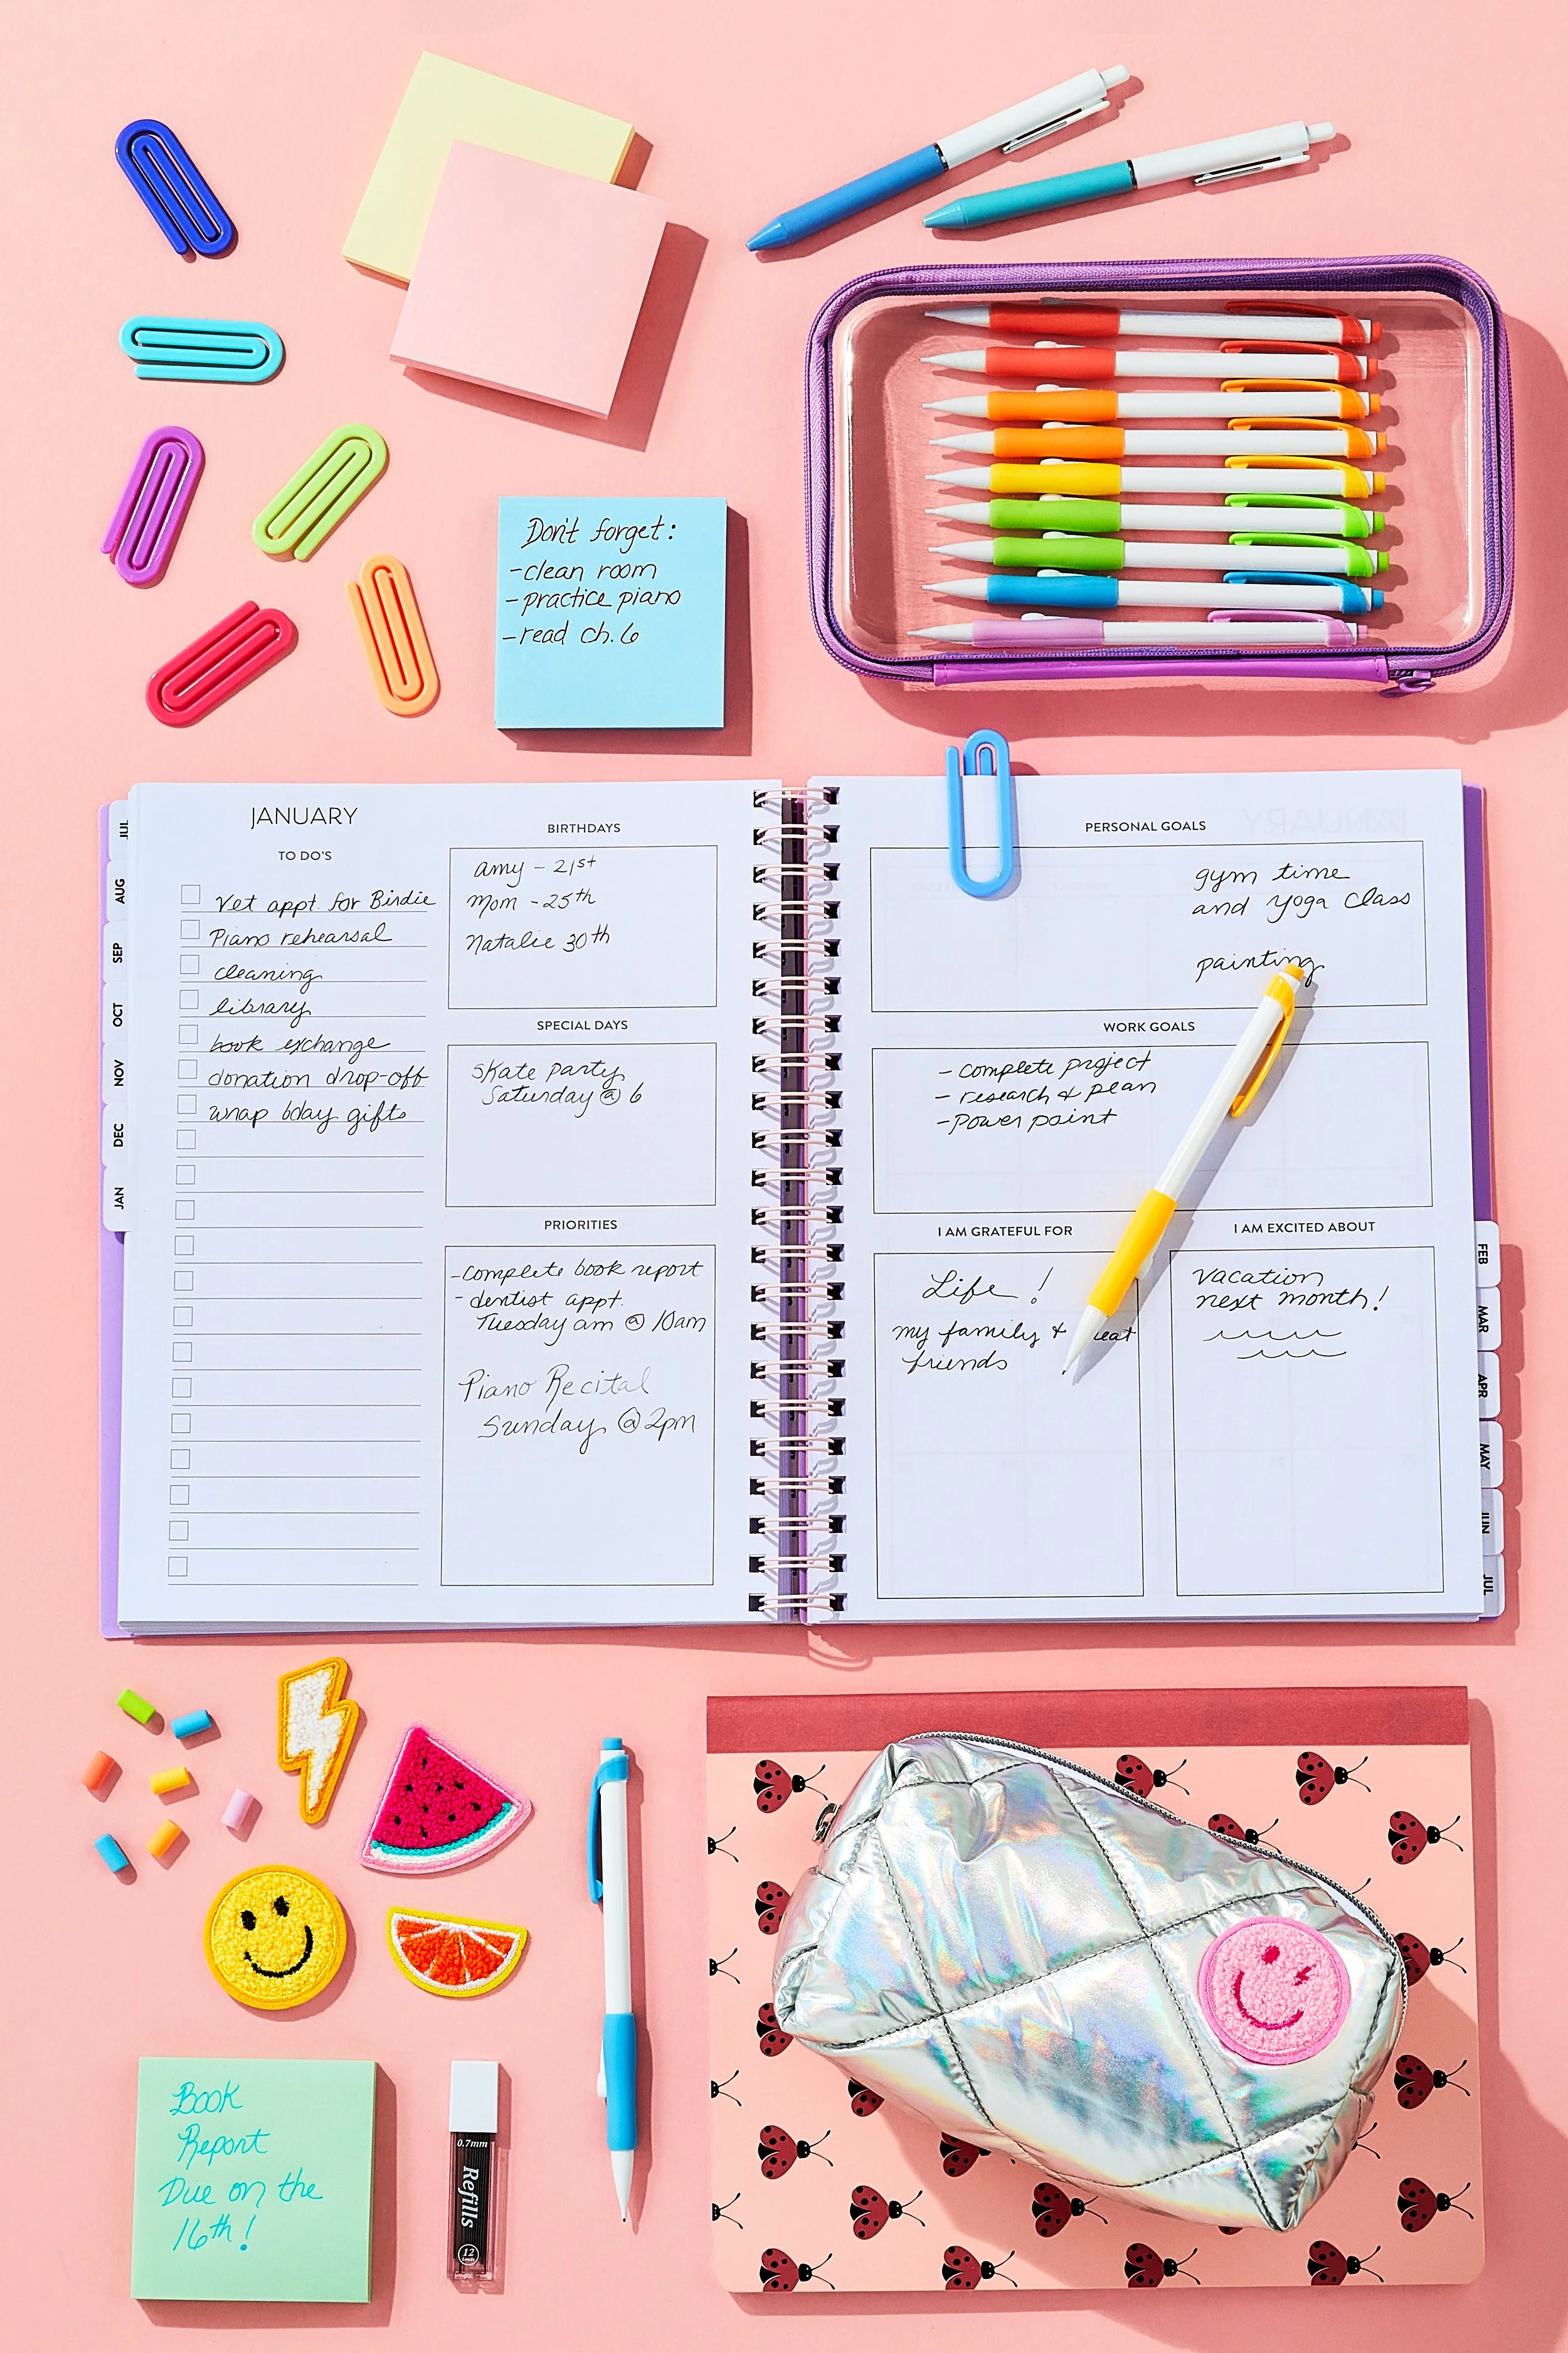 Don't forget:
-clean room
-practice piano
-read ch.6
JANUARY
TO DO'S
Vet appt. for Birdie
Piano rehearsal
cleaning
library
book exchange
donation drop-off
wrap bday gifts
BIRTHDAYS
Amy - 21st
Mom - 25th
Natalie 30th
SPECIAL DAYS
Skate party
Saturday @ 6
PRIORITIES
-Complete book report
- dentist appt.
Tuesday am @ 10am
Piano Recital
Sunday @ 2pm
JUL
AUG
SEP
OCT
NOV
DEC
JAN
PERSONAL GOALS
gym time
and yoga class
painting
WORK GOALS
- complete project
- research & plan
- Power point
I AM GRATEFUL FOR
Life !
my family &
friends
I AM EXCITED ABOUT
Vacation
next month!
FEB
MAR
APR
MAY
JUN
JUL
Book
Report
Due on the
16th!
0.7mm
Refills
12